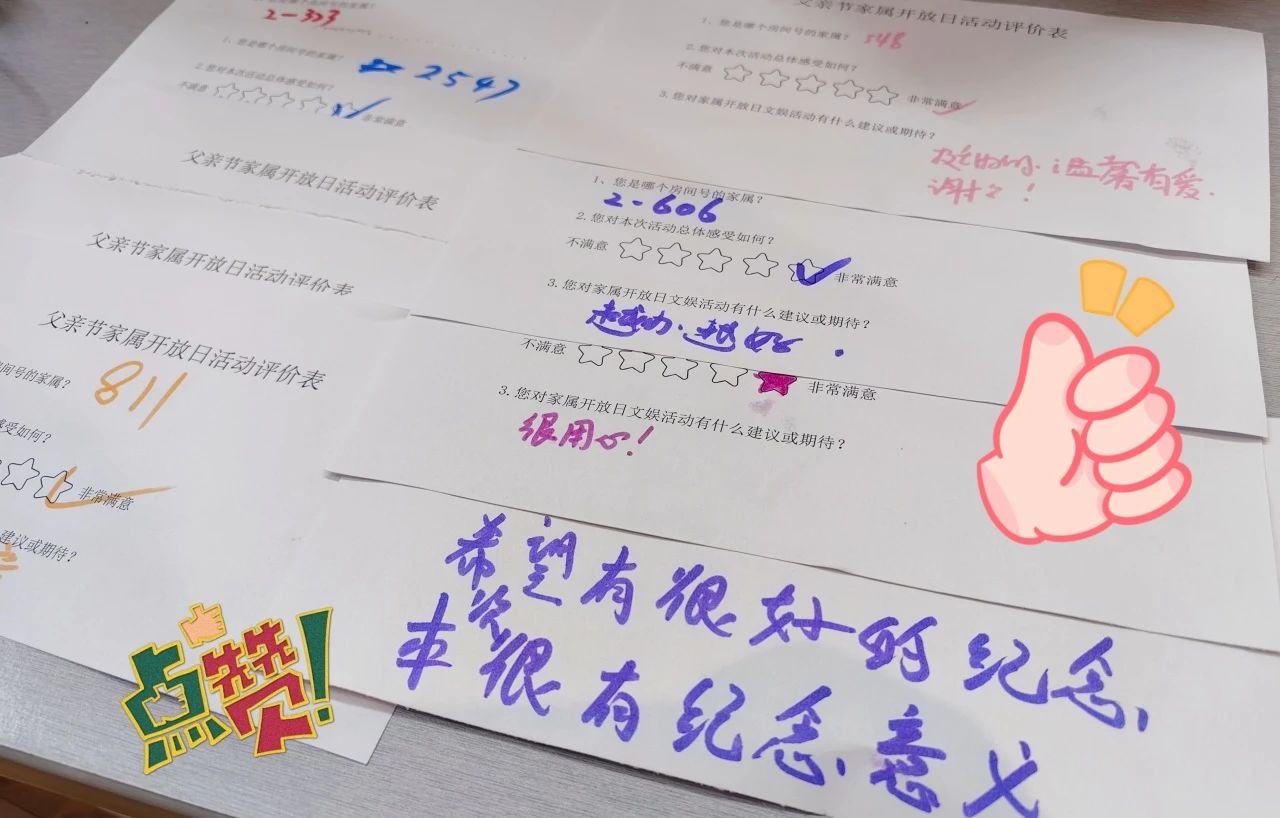 2-323
1、您是哪个房间号的家属？ 2547
2.您对本次活动总体感受如何？
不满意 非常满意
父亲节家属开放日活动评价表
父亲节家属开放日活动评价表
父亲节家属开放日活动评价表
间号的家属？ 811
感受如何？
非常满意
建议或期待？
父亲节家属开放日活动评价表
1、您是哪个房间号的家属？ 548
2.您对本次活动总体感受如何？
不满意 非常满意
3.您对家属开放日文娱活动有什么建议或期待？
挺好的，温馨有爱.
谢谢！
1、您是哪个房间号的家属？
2-606
2.您对本次活动总体感受如何？
不满意 非常满意
3.您对家属开放日文娱活动有什么建议或期待？
越 越
不满意 非常满意
3.您对家属开放日文娱活动有什么建议或期待？
很用心！
希望有很好的纪念
很有纪念意义
点赞!